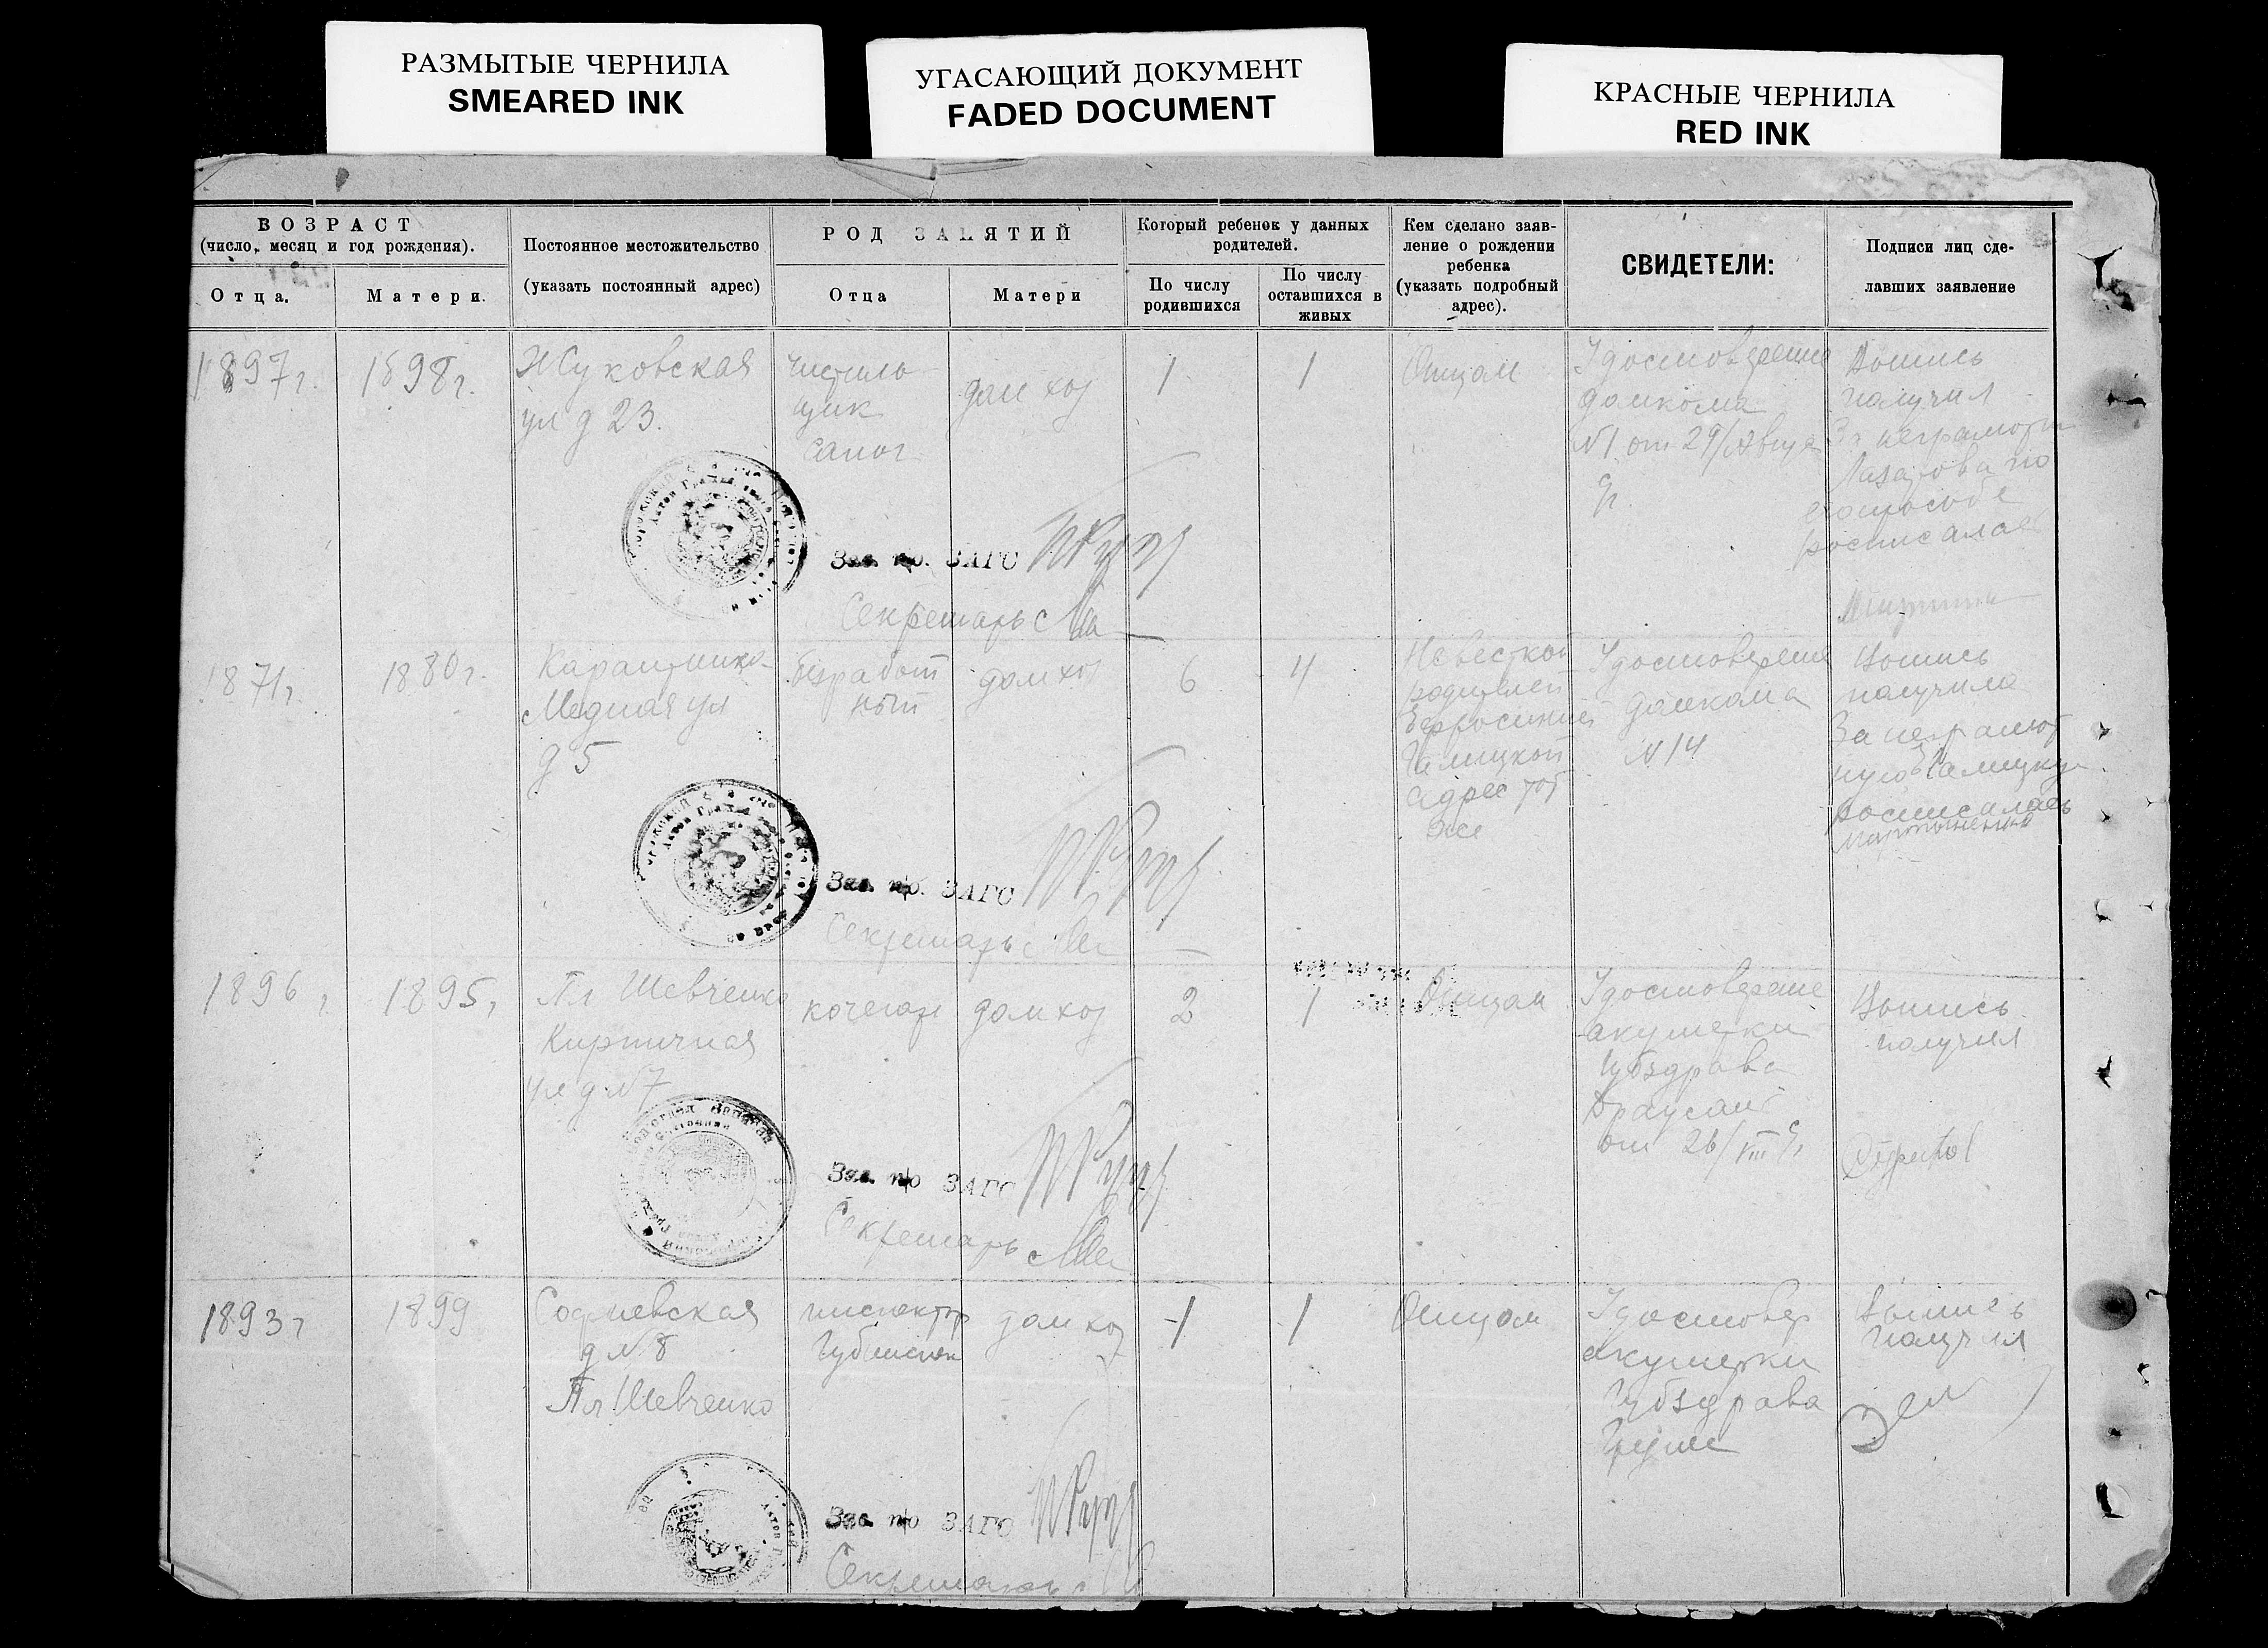 РАЗМЫТЫЕ ЧЕРНИЛА
SMEARED INK
УГАСАЮЩИЙ ДОКУМЕНТ
FADED DOCUMENT
КРАСНЫЕ ЧЕРНИЛА
RED INK
ВОЗРАСТ
(число, месяц и год рождения).
Отца.
Матери.
Постоянное местожительство
(указать постоянный адрес)
РОД ЗАНЯТИЙ
Отца
Матери
Который ребенок у данных
родителей.
По числу
родившихся
По числу
оставшихся в
живых
Кем сделано заяв-
ление о рождении
ребенка
(указать подробный
адрес).
СВИДЕТЕЛИ:
Подписи лиц сде-
лавших заявление
1897г.
1898г.
Жуковская
ул д 23.
чистиль
щик
сапог
дом хоз
1
1
Отцом
Удостоверение
домкома
N1 от 29/
Выпись
получил
За неграмотн
Лазарова по
его просьбе
росписалась
Зав. п/о. ЗАГС
Секретарь
1871г.
1880г.
Карантинка
Медная ул
д 5
безработ
ный
дом хоз
6
4
Невесткой
родителей
Галицкой
адрес тот
же
Удостоверение
домкома
N14
Выпись
получила
За неграмот
ную Галицкую
росписалась
Зав. п/о. ЗАГС
Секретарь
1896 г.
1895г
Пл Шевченко
Кирпичная
ул д N7
кочегар
дом хоз
2
1
Отцом
Удостоверение
акушерки
Губздрава
от 26/VIII
Выпись
получил
Зав. п/о ЗАГС
Секретарь
1893г
1899
Софиевская
д N8
Пл Шевченко
инспектор
дом хоз
1
1
Отцом
Удостовер
акушерки
Губздрава
Выпись
получил
Зав. п/о ЗАГС
Секретарь